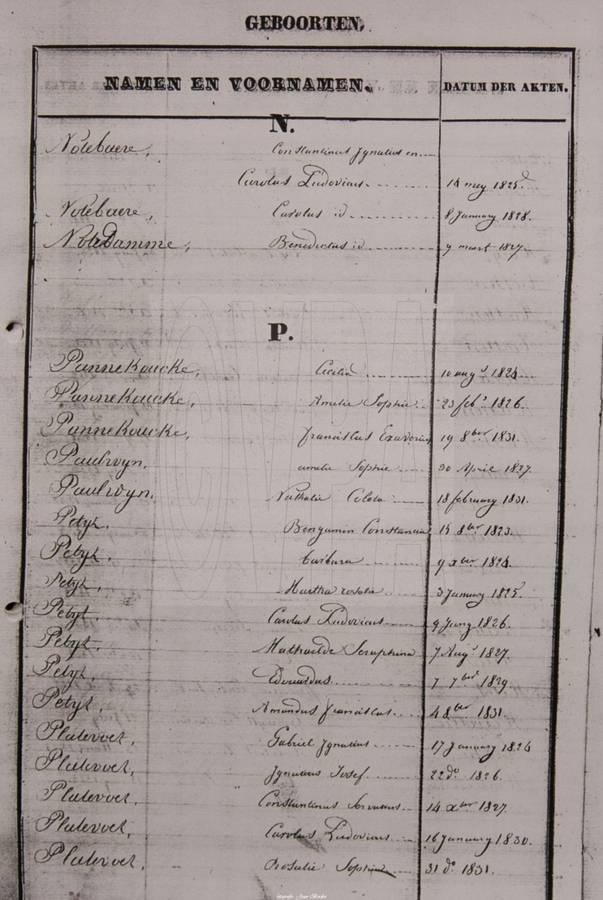 GEBOORTEN.
NAMEN EN VOORNAMEN. DATUM DER AKTEN.
N.
Notebaere, Constantinus Ignatius en
Carolus Ludovicus 14 mey 1825
Notebaere, Carolus id 8 January 1828.
NoteDamme, Benedictus id 9 maart 1827.
P.
Pannekoucke, Cecilia 10 augt 1824
Pannekoucke, Amelie Sophie 23 feb. 1826.
Pannekoucke, franciscus Exaverius 19 8ber 1831.
Paulwyn. amelie Sophie 30 Aprile 1827.
Paulwyn. Nathalie Coleta 18 february 1831.
Petyt. Benjamin Constantin 15 8ber 1823.
Petyt. barbara 9 xber 1824.
Petyt. Martha rosalie 3 January 1825.
Petyt. Carolus Ludovicus 9 Juny 1826.
Petyt. Mathilde Seraphina 7 Augt 1827.
Petyt. Eduardus 7 7ber 1829
Petyt, Amandus franciscus 4 8ber 1831
Platevoet, Gabriel Ignatius 17 January 1824
Platevoet, Ignatius Josef 22 do. 1826.
Platevoet, Constantinus Servatius 14 xber 1827.
Platevoet, Carolus Ludovicus 16 January 1830.
Platevoet, Rosalie Sophie 31 do 1831.